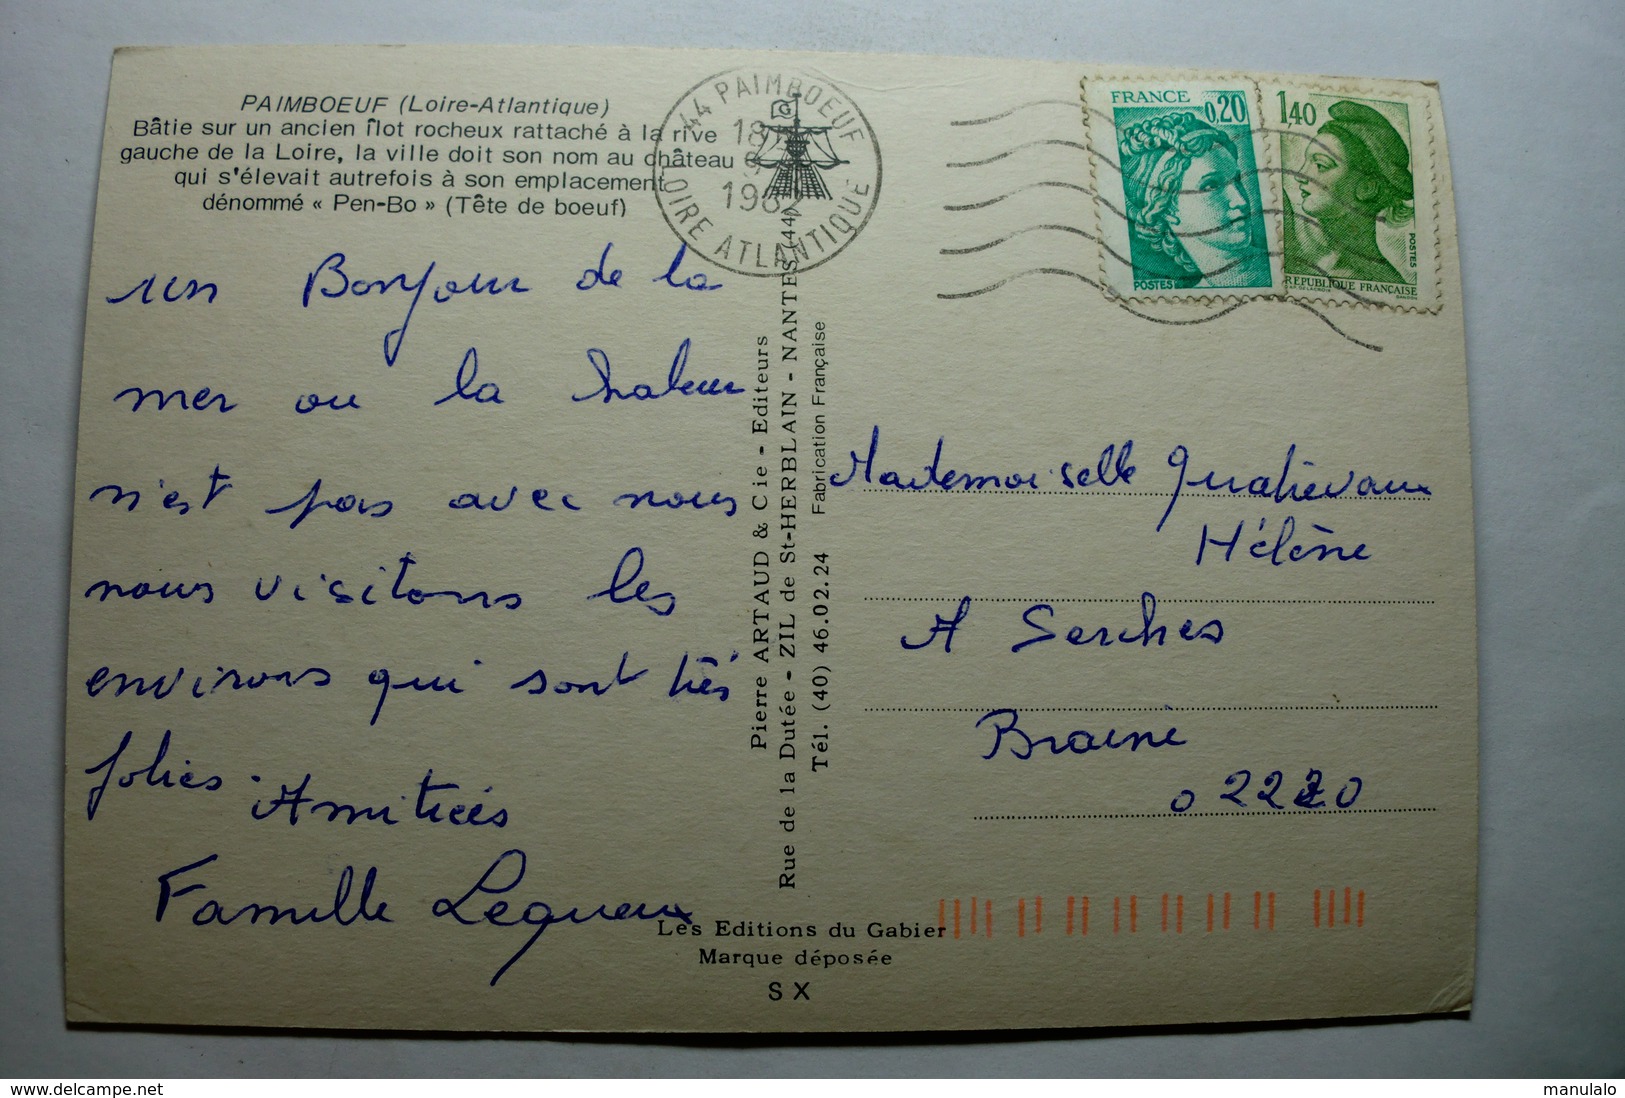 PAIMBOEUF (Loire-Atlantique)
Bâtie sur un ancien îlot rocheux rattaché à la rive
gauche de la Loire, la ville doit son nom au château
qui s'élevait autrefois à son emplacement
dénommé « Pen-Bo » (Tête de boeuf)
un Bonjour de la
mer ou la
n'est pas avec nous
nous visitons les
environs qui sont très
jolies.
Amitiées
Famille Lequeux
44 PAIMBOEUF
18
LOIRE ATLANTIQUE
Pierre ARTAUD & Cie - Editeurs
Rue de la Dutée - ZIL de St-HERBLAIN - NANTES (44)
Tél. (40) 46.02.24 Fabrication Française
Les Editions du Gabier
Marque déposée
S X
FRANCE
0,20
POSTES
1,40
POSTES
RÉPUBLIQUE FRANÇAISE
Mademoiselle
Hélène
A Serches
Braine
02220
delcampe.net
manulalo